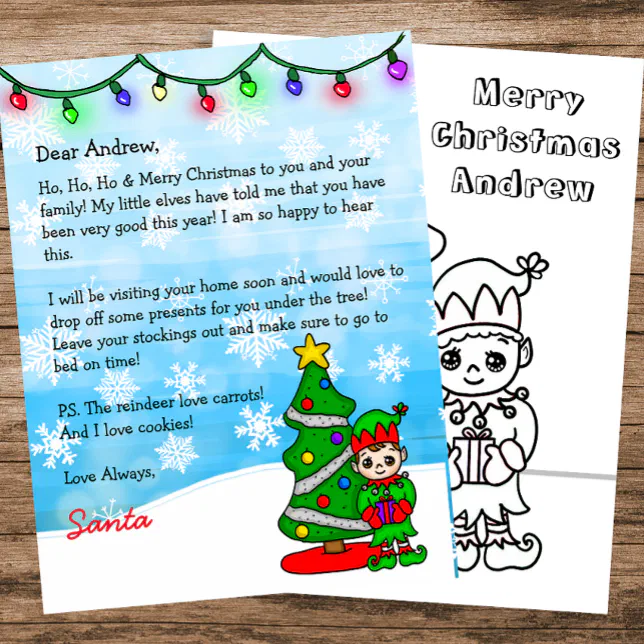 Dear Andrew,
Ho, Ho, Ho & Merry Christmas to you and your
family! My little elves have told me that you have
been very good this year! I am so happy to hear
this.
I will be visiting your home soon and would love to
drop off some presents for you under the tree!
Leave your stockings out and make sure to go to
bed on time!
PS. The reindeer love carrots!
And I love cookies!
Love Always,
Santa
Merry
Christmas
Andrew